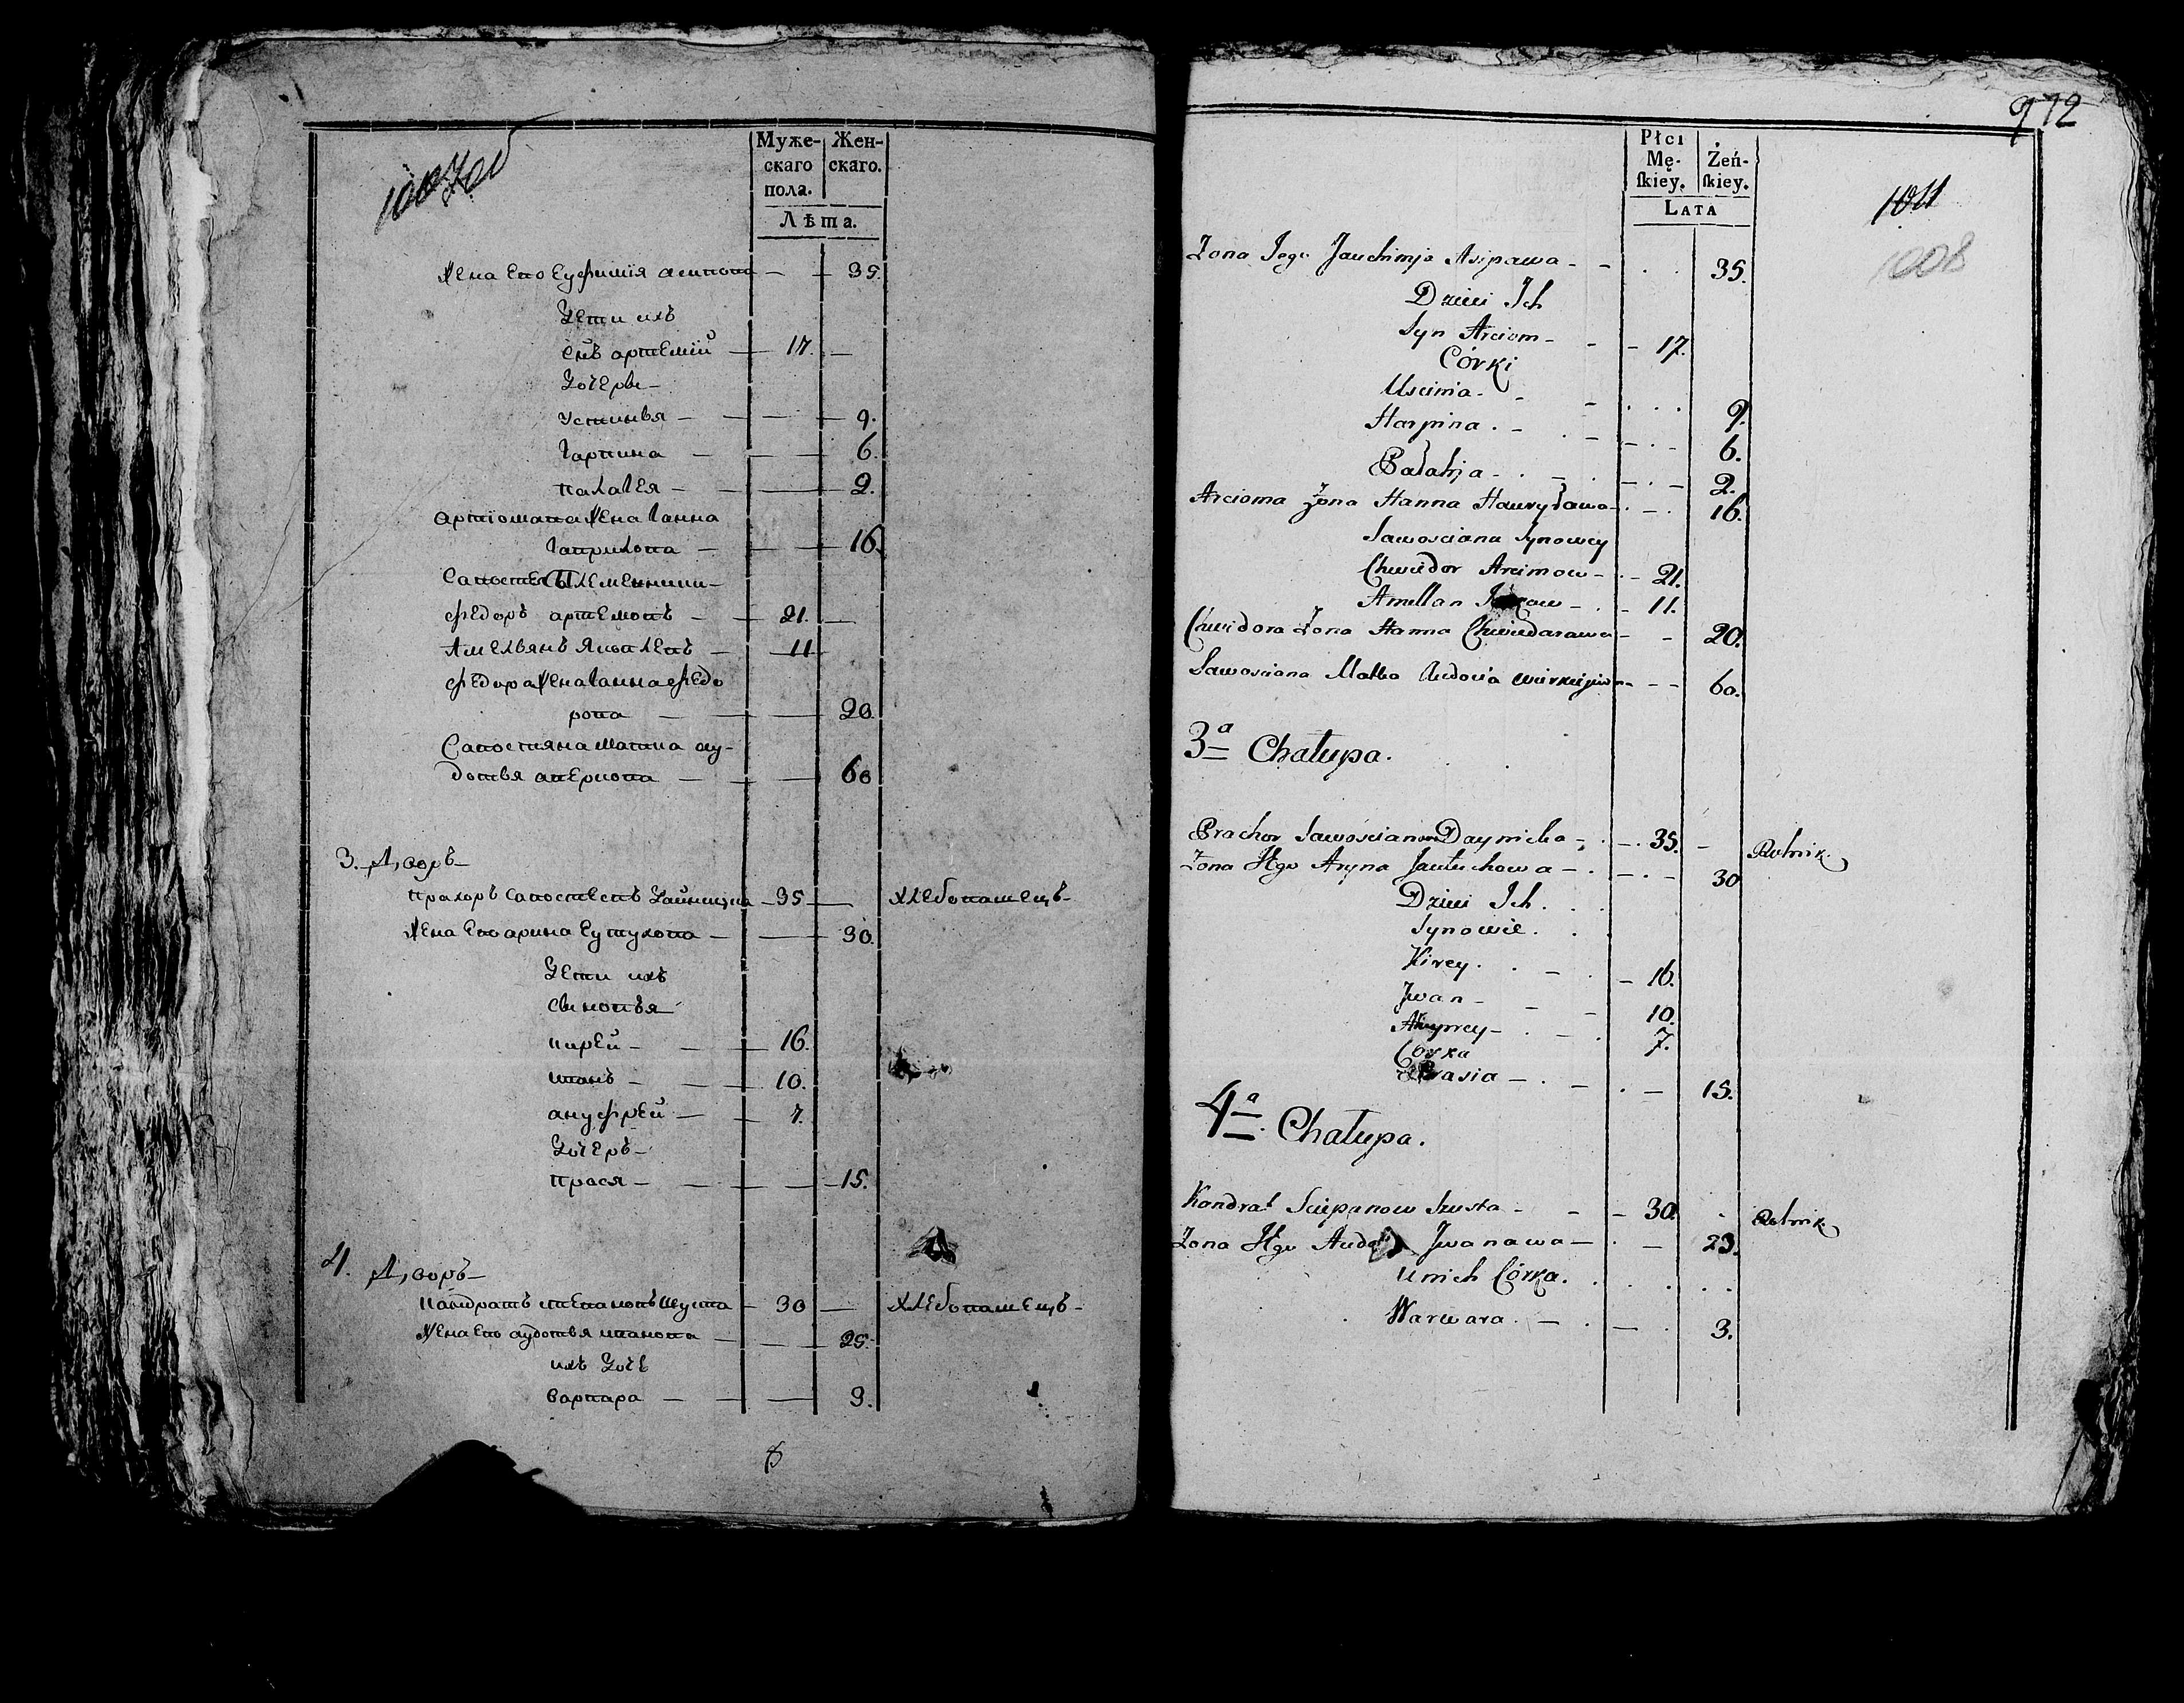 Муже-
скаго
пола.
Жен-
скаго.
Лѣта.
Жена Его Еуфимія — — 35.
Дети ихъ
Снъ артемій — 17. —
Дочери —
устинья — — — 9.
Гарпина — — — 6.
палагея — — — 2.
артіомова Жена Ганна
Гаврилова — — — 16.
Савостея Племенники —
Федоръ артемовъ — — 21. —
Амельянъ Яковлевъ — — 11
Федора Жена Ганна Федо
рова — — — 20.
Савостяна матка ау-
дотья — — — 60
3. Дворъ —
прахоръ савостеевъ — 35 — хлебопашецъ —
Жена Его арина Еутухова — — 30.
Дети ихъ
сыновья
кирей — — — 16.
иванъ — — — 10.
ануфрей — — 7.
Дочеръ —
прася — — — — 15.
4. Дворъ —
кандратъ степановъ шуста — 30 — хлебопашецъ —
Жена Его аудотья иванова — — 25.
ихъ Дочь
варвара — — — 3.
972
Płci
Mę-
ſkiey.
Żeń-
ſkiey.
LATA
1011
1008
Zona Jego Jauchimja Asipawa - - . . 35.
Dzieci Ich
Syn Arciom - - - 17.
Córki
Uscinia - - - . . . 9.
Harpina . - . - - . - 6.
Pałahja - . - . - . - 2.
Arcioma Zona Hanna Hawryława - . - . 16.
Sawosciana Synowcy
Chwiedor Arcimow - . - 21.
Amellan - . - 11.
Chwidora Zona Hanna Chwiedarawa - - 20.
Sawosciana Matka Audocia - - - 60.
3ª Chałupa.
Prachor Sawościanow Daynicka - . - . 35. - Rolnik.
Zona Jego Aryna Jautuchowa - . - . - 30
Dzieci Ich . . .
Synowie . . .
Kirey . . - . - 16.
Jwan - - - 10.
- . - . 7.
Córka
Prasia - . - . - 15.
4ª Chałupa.
Kondrat Sciepanow Szusta - - - 30 . Rolnik.
Zona Jego Jwanawa - . - 23.
U nich Córka . . . . .
Warwara . - . - . 3.